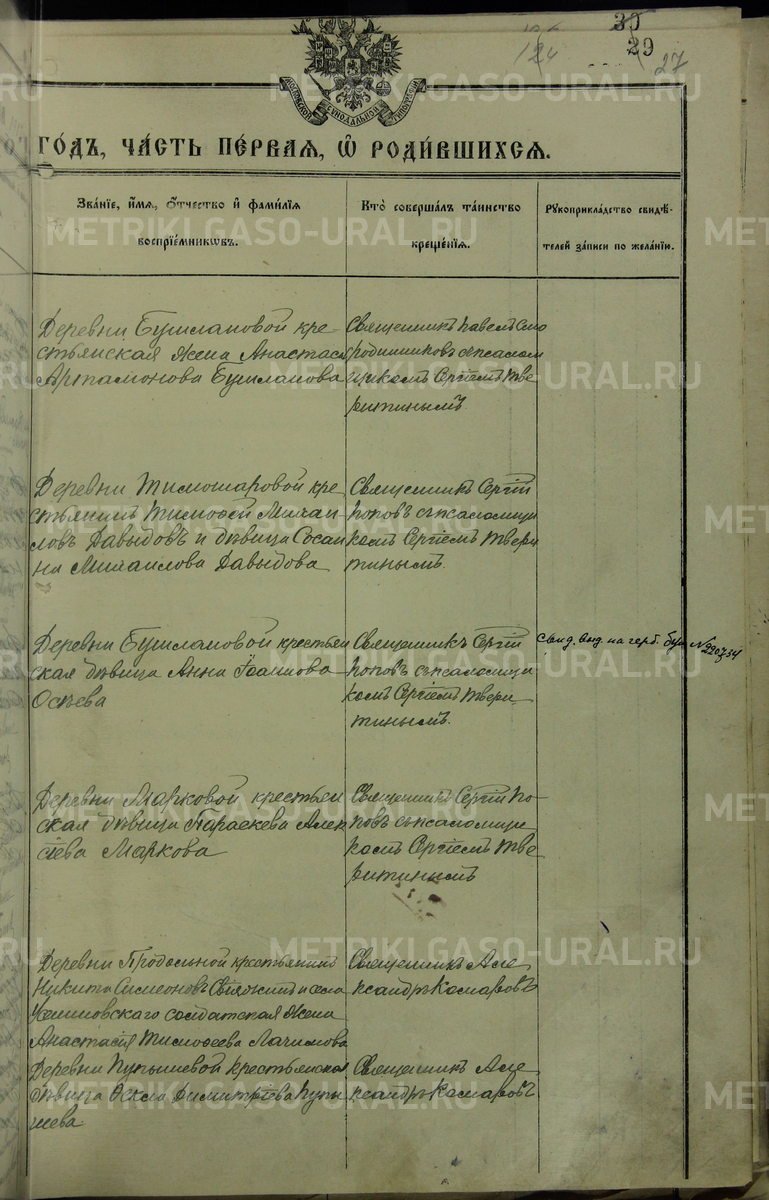 30
124 29 27
МОСКОВСКОЙ СѴНОДАЛЬНОЙ ТИПОГРАФІИ
го́дъ, ча́сть пе́рвая, ѡ҆ роди́вшихся.
Зва́ніе, и҆́мя, ѻ҆́тчество и҆ фами́лія
воспріе́мникѡвъ.
Кто̀ соверша́лъ та́инство
креще́нія.
Рꙋкоприкла́дство свидѣ́-
телей за́писи по жела́нію.
Деревни Бушлановой кре-
стьянская жена Анастасія
Артамонова Бушланова
Священникъ Павелъ Смо
родинниковъ съ псалом
щикомъ Сергіемъ Тве
ритинымъ.
Деревни Тимошаровой кре
стьянинъ Тимоѳей Михаи-
ловъ Давыдовъ и дѣвица Сосан
на Михаилова Давыдова
Священникъ Сергій
Поповъ съ псаломщи
комъ Сергіемъ Твери
тинымъ.
Деревни Бушлановой крестьян
ская дѣвица Анна Іоаннова
Осѣева
Священникъ Сергій
Поповъ съ псаломщи
комъ Сергіемъ Твери
тинымъ.
Свид. выд. на герб. бум. №220734
Деревни Марковой крестьян
ская дѣвица Параскева Алек
сіева Маркова
Священникъ Сергій По-
повъ съ псаломщи
комъ Сергіемъ Тве
ритинымъ
Деревни Продольной крестьянинъ
Никита Симеоновъ и села
солдатская жена
Анастасія Тимоѳеева Лачимова
Священникъ Але
ксандръ Комаровъ
Деревни Пупышевой крестьянская
дѣвица Ѳекла Димитріева Пупы
шева
Священникъ Але
ксандръ Комаровъ
METRIKI.GASO-URAL.RU